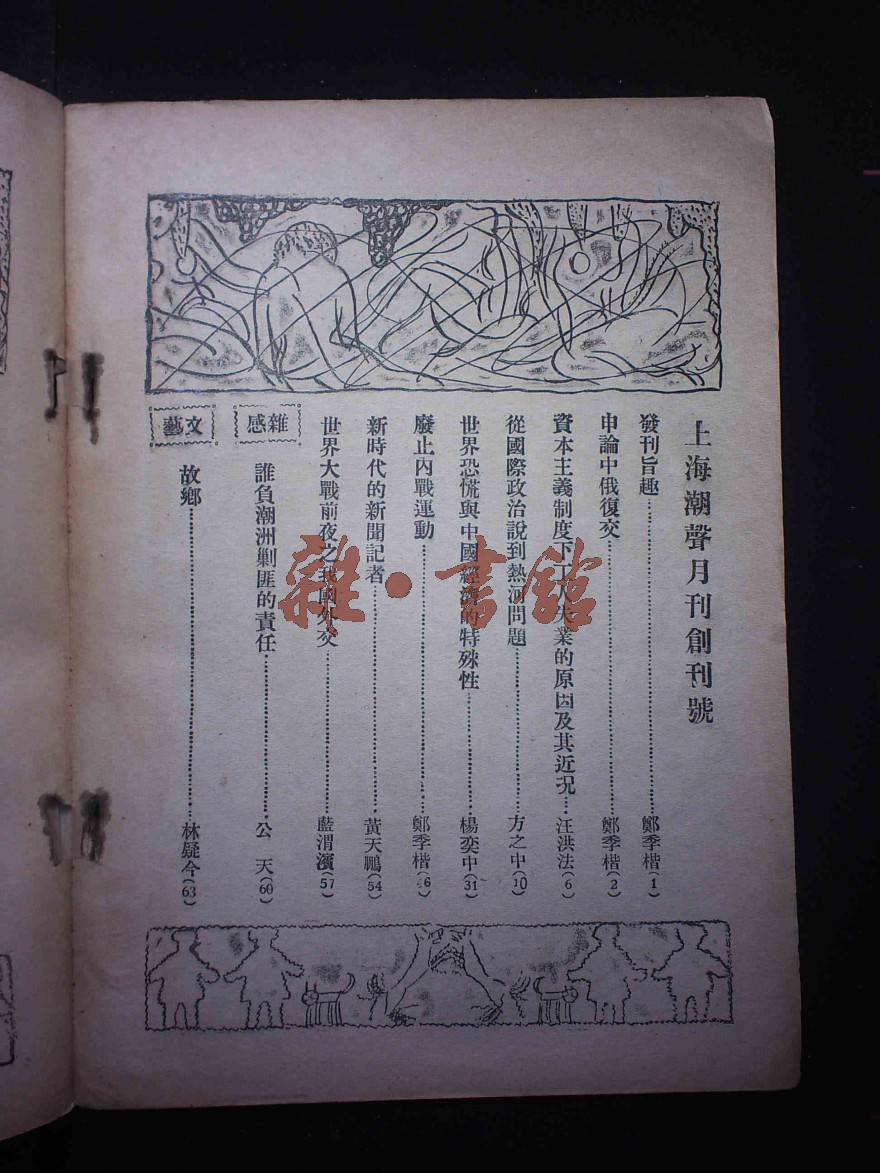 上海潮聲月刊創刊號
發刊旨趣……鄭季楷(1)
申論中俄復交……鄭季楷(2)
資本主義制度下工人失業的原因及其近況……汪洪法(6)
從國際政治說到熱河問題……方之中(10)
世界恐慌與中國經濟的特殊性……楊奕中(31)
廢止內戰運動……鄭季楷(46)
新時代的新聞記者……黃天鵬(54)
世界大戰前夜之我國外交……藍渭濱(57)
雜感
誰負潮洲剿匪的責任……公 天(60)
文藝
故鄉……林疑今(63)
雜·書館